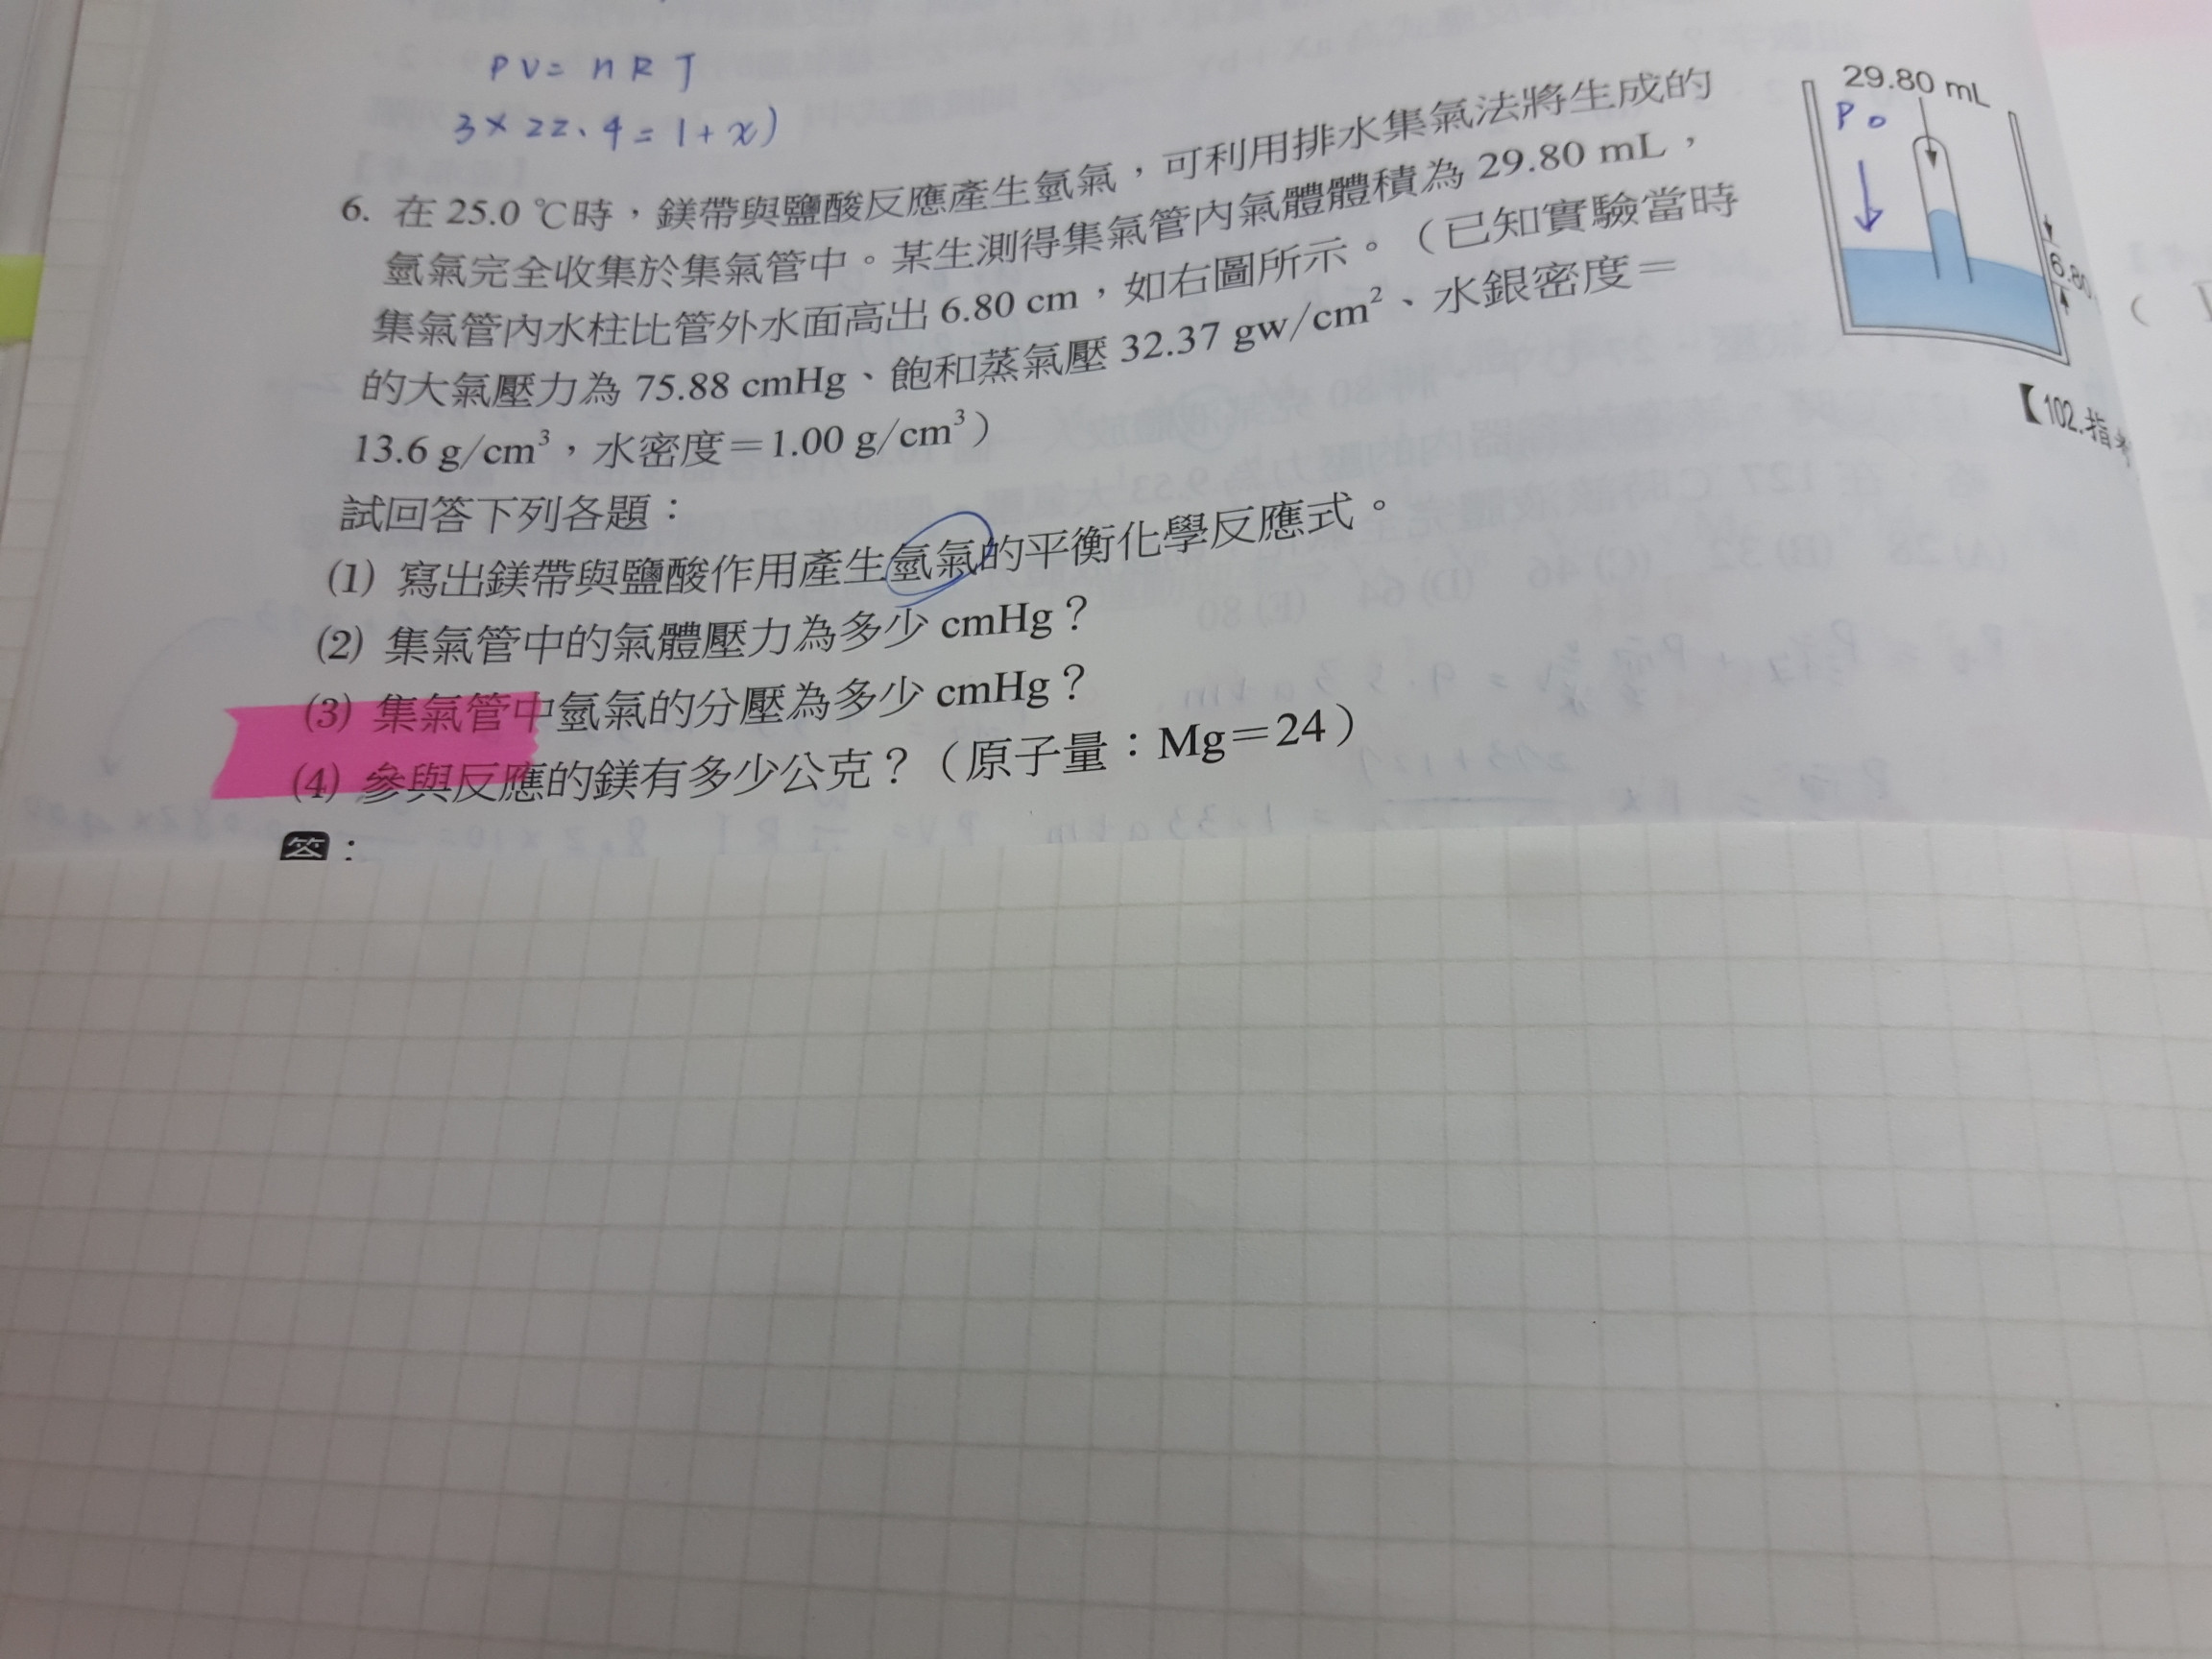 PV=nRT
3×22.4=1+x)
29.80 mL
P0
6.80
6. 在 25.0 ℃時，鎂帶與鹽酸反應產生氫氣，可利用排水集氣法將生成的
氫氣完全收集於集氣管中。某生測得集氣管內氣體體積為 29.80 mL，
集氣管內水柱比管外水面高出 6.80 cm，如右圖所示。（已知實驗當時
的大氣壓力為 75.88 cmHg、飽和蒸氣壓 32.37 gw/cm²、水銀密度＝
13.6 g/cm³，水密度＝1.00 g/cm³）
【102.指考
試回答下列各題：
(1) 寫出鎂帶與鹽酸作用產生氫氣的平衡化學反應式。
(2) 集氣管中的氣體壓力為多少 cmHg？
(3) 集氣管中氫氣的分壓為多少 cmHg？
(4) 參與反應的鎂有多少公克？（原子量：Mg＝24）
答：